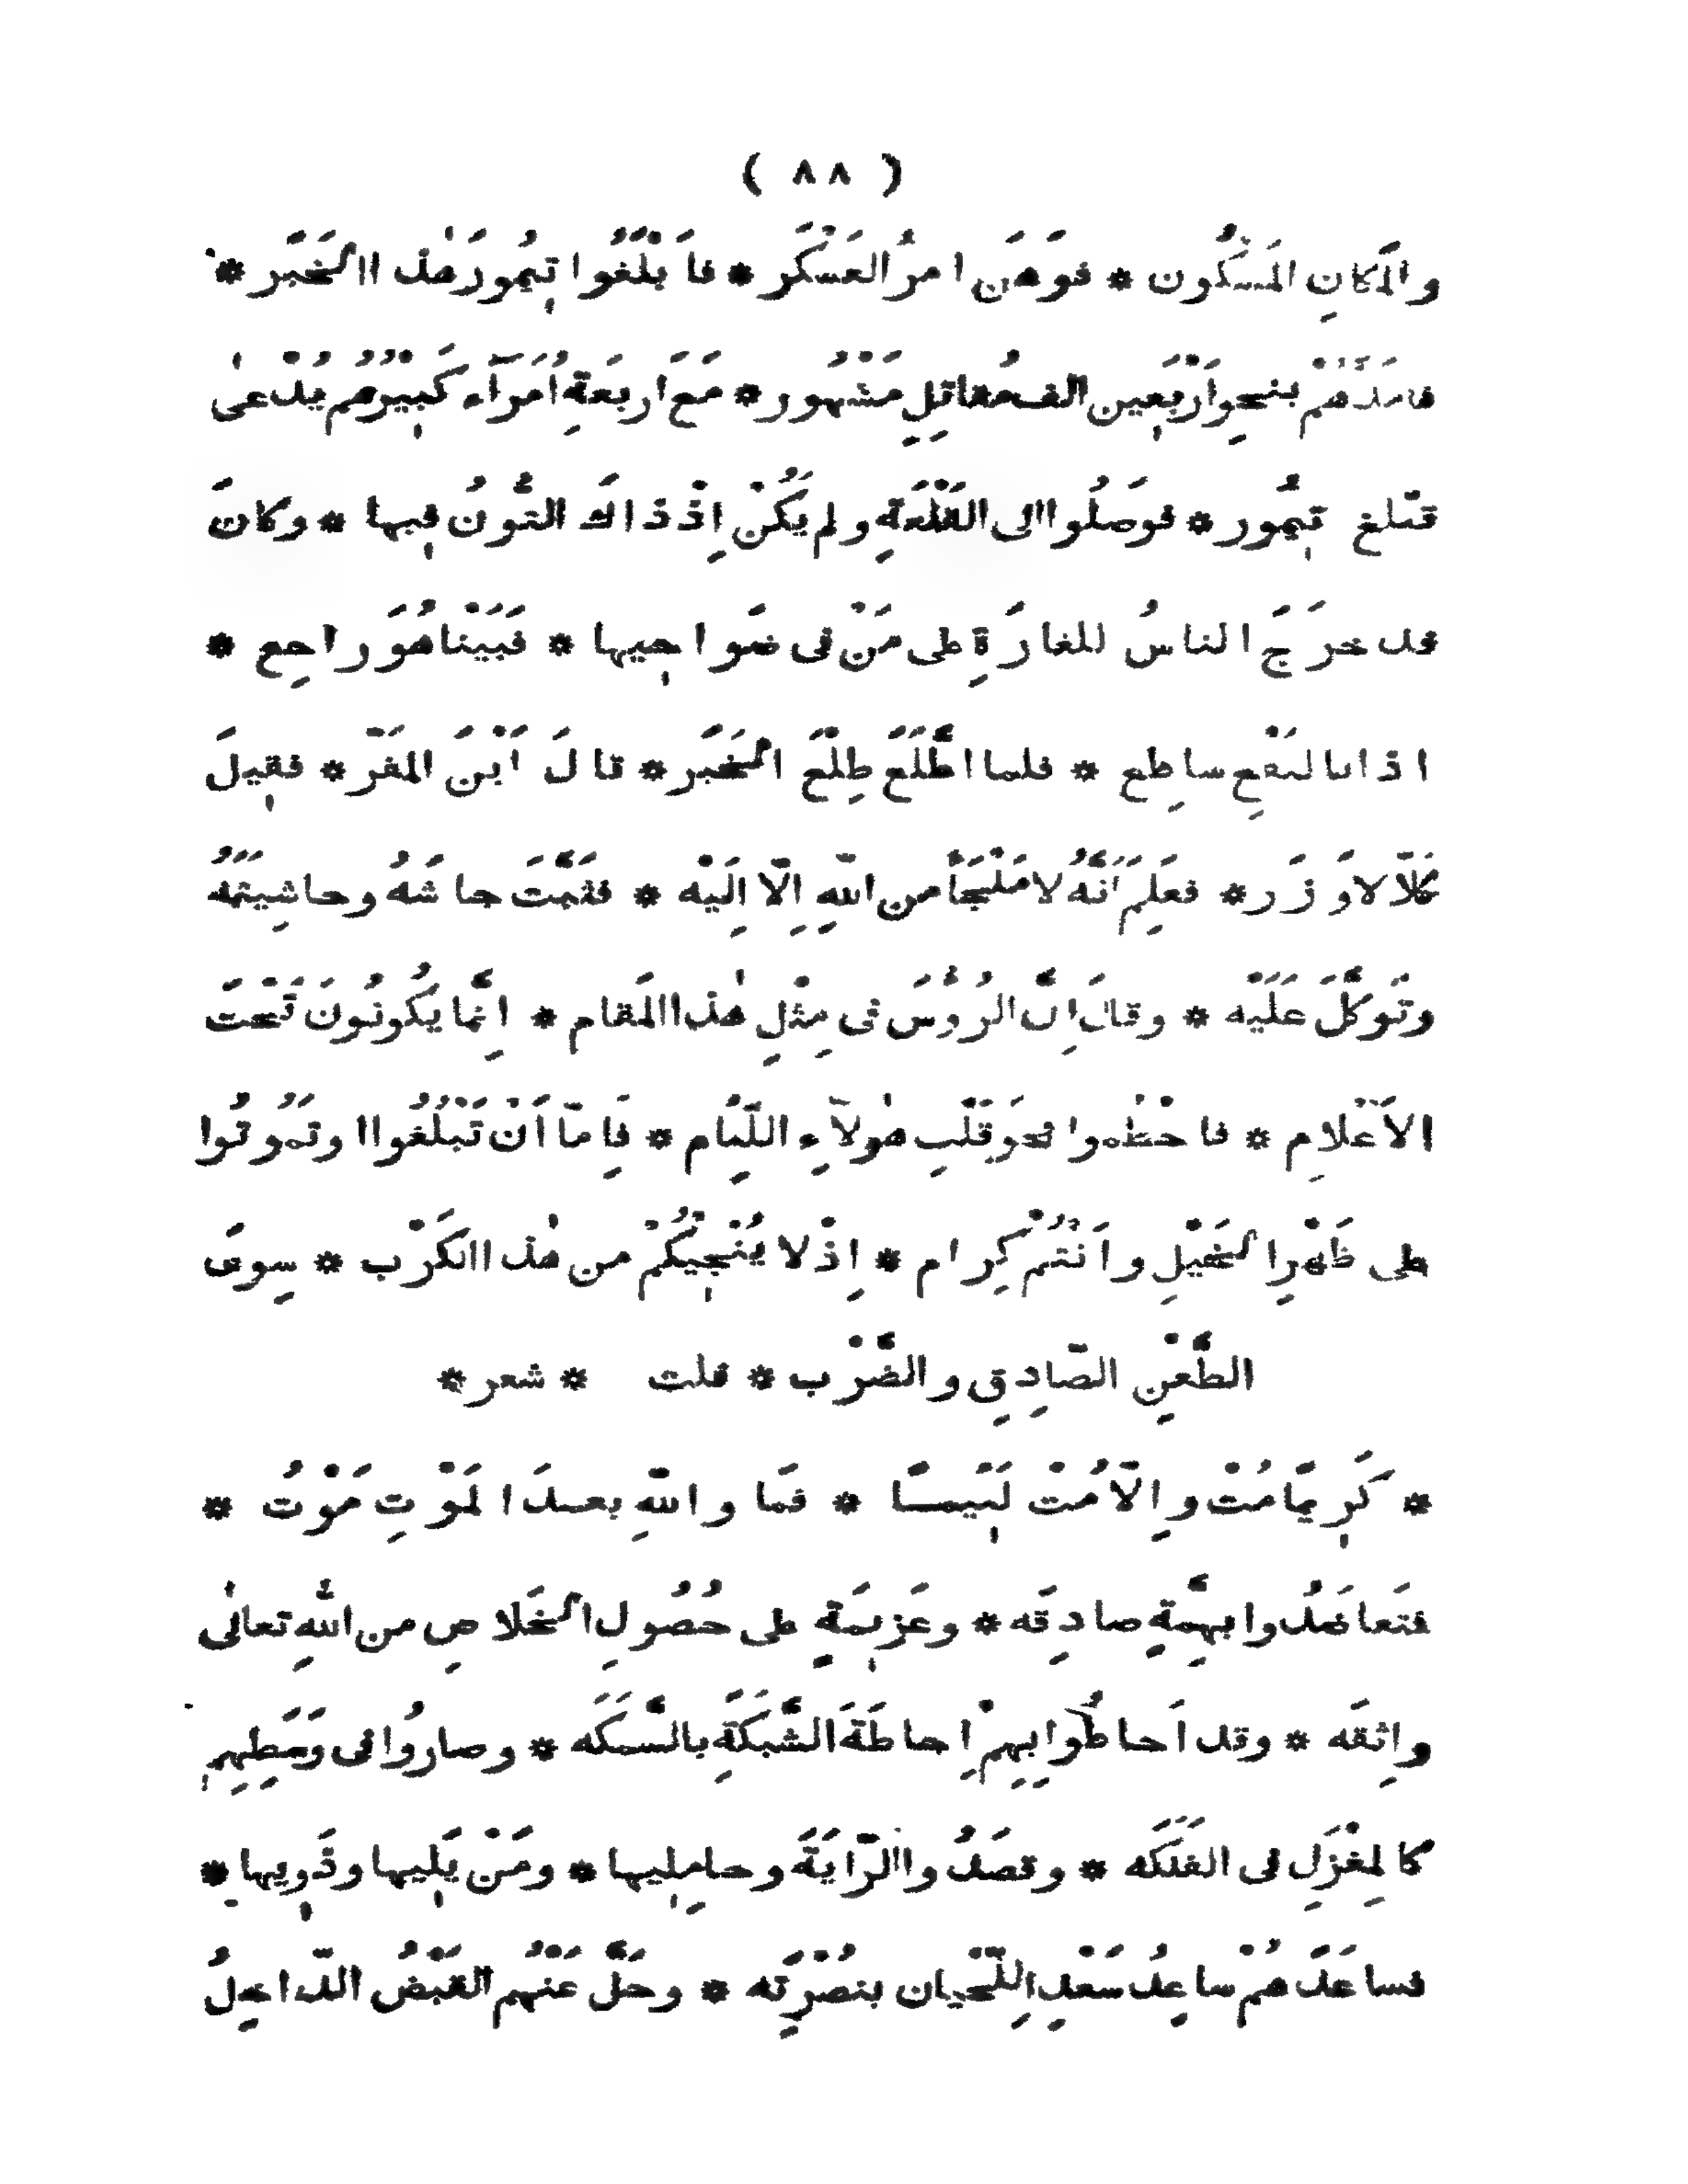 ( ٨٨ )
والمَكانِ المَسْكُون * فوَهَنَ امرُ العَسْكَر * فاَبْلَغُوا تِيْمُورَ هٰذا الخَبَر *
فامَدَّهُمْ بنحوِ اَرْبَعِين الف مُقاتِلٍ مَشْهُور * مَعَ اربَعَةِ اُمَرآءَ كَبِيْرُهُم يُدْعىٰ
قتلغ تِيْمُور * فوَصَلُوا الى القَلْعَةِ ولم يَكُنْ اِذْ ذاكَ التُّونُ فِيها * وكانَ
قد خرَجَ الناسُ للغارَةِ على مَنْ فى ضَواحِيها * فبَيْنَا هُوَ راجِع *
اذا بالنَقْعِ ساطِع * فلما اطَّلَعَ طِلْعَ الخَبَر * قالَ اَيْنَ المَفَرّ * فقِيلَ
كَلاّ لا وَزَر * فعَلِمَ اَنَّهُ لا مَلْجَأَ من اللّهِ اِلاّ اِلَيْه * فثَبَّتَ جاشَهُ وحاشِيَتَهُ
وتَوَكَّلَ عَلَيْه * وقالَ اِنَّ الرُؤُسَ فى مِثْلِ هٰذا المَقام * اِنَّما يَكُونُونَ تَحْتَ
الاَعْلام * فاحْطِموا نحوَ قَلْبِ هٰولآءِ اللِّئَام * فَاِمّا اَنْ تَبْلُغُوا اوتَمُوتُوا
على ظَهْرِ الخَيْلِ واَنْتُمْ كِرام * اِذْ لا يُنْجِيْكُمْ من هٰذا الكَرْب * سِوىَ
الطَّعْنِ الصّادِقِ والضَّرْب * قلت * شعر *
* كَرِيمًا مُتْ واِلاّ مُتْ لَئِيمًا * فَما واللّهِ بعدَ المَوْتِ مَوْتُ *
فتَعاضَدُوا بهِمَّةٍ صادِقَه * وعَزِيمَةٍ على حُصُولِ الخَلاصِ من اللّٰهِ تعالىٰ
واثِقَه * وقد اَحاطُوا بِهِمْ اِحاطَةَ الشَّبَكَةِ بالسَّمَكَه * وصارُوا فى وَسَطِهِم
كالمِغْزَلِ فى الفَلَكَه * وقصَدُوا الرّايَةَ وحامِلِيها * ومَنْ يَلِيها وذَوِيها *
فساعَدَهُمْ ساعِدُ سَعْدِ اللِّحْيان بنُصْرَتِه * وحَلَّ عَنْهُم القَبْضُ الدّاخِلُ